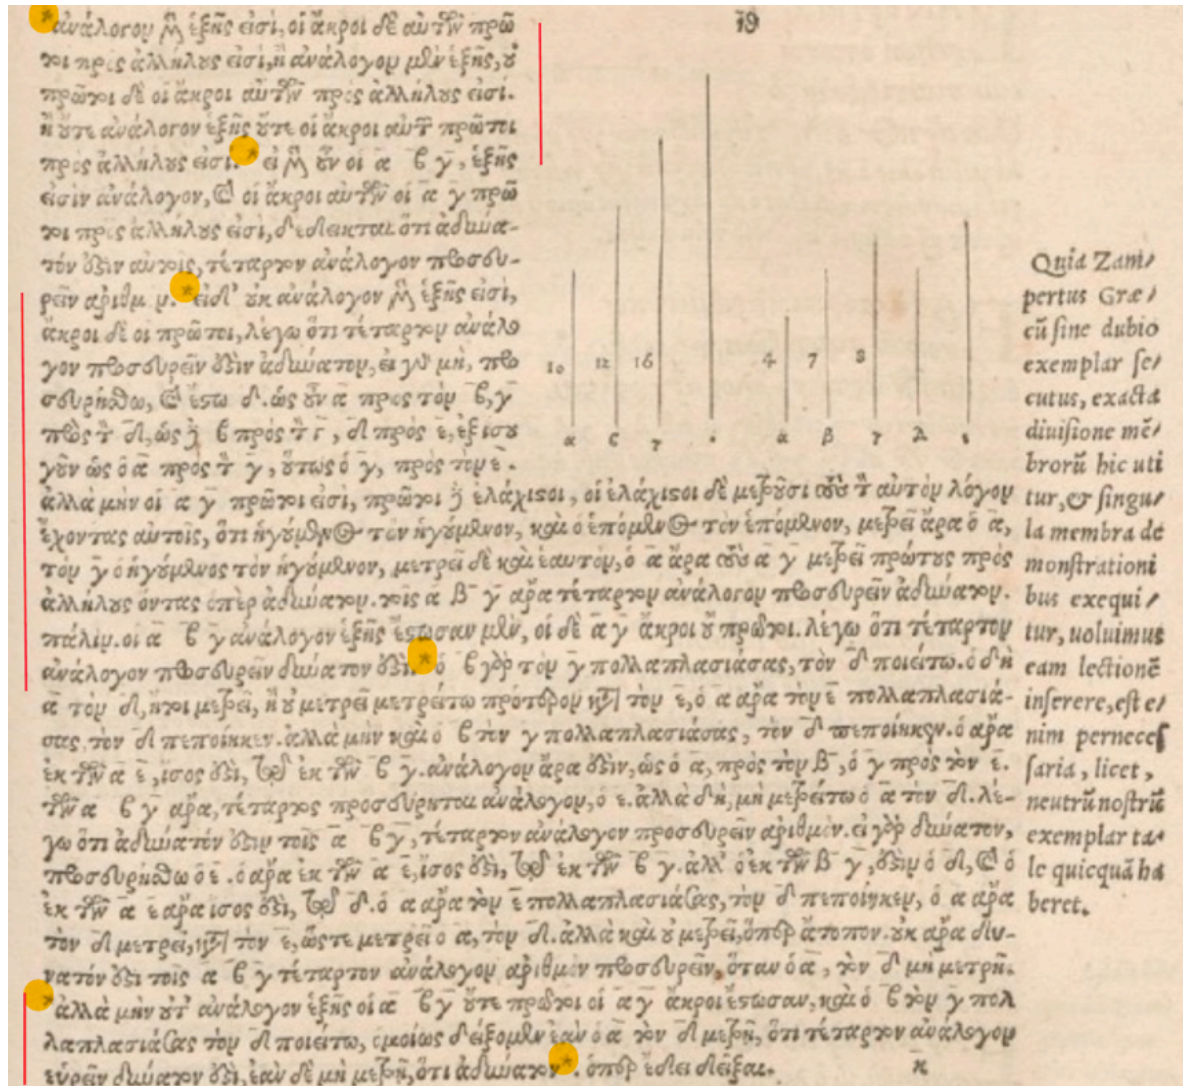 *ἀνάλογον μὲν ἑξῆς εἰσί, οἱ ἄκροι δὲ αὐτῶν πρῶ
τοι πρὸς ἀλλήλους εἰσί, ἢ ἀνάλογον μὲν ἑξῆς, οὐ
πρῶτοι δὲ οἱ ἄκροι αὐτῶν πρὸς ἀλλήλους εἰσί.
ἢ οὔτε ἀνάλογον ἑξῆς οὔτε οἱ ἄκροι αὐτῶν πρῶτοι
πρὸς ἀλλήλους εἰσί.* εἰ μὲν οὖν οἱ α β γ, ἑξῆς
εἰσὶν ἀνάλογον, καὶ οἱ ἄκροι αὐτῶν οἱ α γ πρῶ
τοι πρὸς ἀλλήλους εἰσί, δέδεικται ὅτι ἀδύνα-
τόν ἐστιν αὐτοῖς, τέταρτον ἀνάλογον προσευ-
ρεῖν * εἰ δ' οὐκ ἀνάλογον μὲν ἑξῆς εἰσί,
ἄκροι δὲ οἱ πρῶτοι, λέγω ὅτι τέταρτον ἀνάλο
γον προσευρεῖν ἐστιν ἀδύνατον, εἰ γὰρ μὴ, προ
σευρήσθω, καὶ ἔστω δ. ὡς οὖν α πρὸς τὸν β, γ
πρὸς τὸν δ, ὡς δὲ β πρὸς τὸν γ, δ πρὸς ε, ἐξ ἴσου
γοῦν ὡς ὁ α πρὸς τὸν γ, οὕτως ὁ γ, πρὸς τὸν ε.
ἀλλὰ μὴν οἱ α γ πρῶτοι εἰσί, πρῶτοι δὲ ἐλάχιστοι, οἱ ἐλάχιστοι δὲ μετροῦσι τοὺς τὸν αὐτὸν λόγον
ἔχοντας αὐτοῖς, ὅτι ἡγούμενος τὸν ἡγούμενον, καὶ ὁ ἑπόμενος τὸν ἑπόμενον, μετρεῖ ἄρα ὁ α,
τὸν γ ὁ ἡγούμενος τὸν ἡγούμενον, μετρεῖ δὲ καὶ ἑαυτόν, ὁ α ἄρα τοὺς α γ μετρεῖ πρώτους πρὸς
ἀλλήλους ὄντας ὅπερ ἀδύνατον. τοῖς α β γ ἄρα τέταρτον ἀνάλογον προσευρεῖν ἀδύνατον.
πάλιν. οἱ α β γ ἀνάλογον ἑξῆς ἔστωσαν μὲν, οἱ δὲ α γ ἄκροι οὐ πρῶτοι. λέγω ὅτι τέταρτον
ἀνάλογον προσευρεῖν δυνατόν ἐστι.* ὁ β γὰρ τὸν γ πολλαπλασιάσας, τὸν δ ποιείτω. ὁ δὴ
α τὸν δ, ἤτοι μετρεῖ, ἢ οὐ μετρεῖ μετρείτω πρότερον κατὰ τὸν ε, ὁ α ἄρα τὸν ε πολλαπλασιά-
σας, τὸν δ πεποίηκεν. ἀλλὰ μὴν καὶ ὁ β τὸν γ πολλαπλασιάσας, τὸν δ πεποίηκεν. ὁ ἄρα
ἐκ τῶν α ε, ἴσος ἐστί, τῷ ἐκ τῶν β γ. ἀνάλογον ἄρα ἐστὶν, ὡς ὁ α, πρὸς τὸν β, ὁ γ πρὸς τὸν ε.
τῶν α β γ ἄρα, τέταρτος προσεύρηται ἀνάλογον, ὁ ε. ἀλλὰ δὴ, μὴ μετρείτω ὁ α τὸν δ. λέ-
γω ὅτι ἀδύνατόν ἐστιν τοῖς α β γ, τέταρτον ἀνάλογον προσευρεῖν ἀριθμόν. εἰ γὰρ δυνατόν,
προσευρήσθω ὁ ε. ὁ ἄρα ἐκ τῶν α ε, ἴσος ἐστί, τῷ ἐκ τῶν β γ. ἀλλ' ὁ ἐκ τῶν β γ, ἐστιν ὁ δ, καὶ ὁ
ἐκ τῶν α ε ἄρα ἴσος ἐστί, τῷ δ. ὁ α ἄρα τὸν ε πολλαπλασιάσας, τὸν δ πεποίηκεν, ὁ α ἄρα
τὸν δ μετρεῖ, κατὰ τὸν ε, ὥστε μετρεῖ ὁ α, τὸν δ. ἀλλὰ καὶ οὐ μετρεῖ, ὅπερ ἄτοπον. οὐκ ἄρα δυ-
νατόν ἐστι τοῖς α β γ τέταρτον ἀνάλογον ἀριθμὸν προσευρεῖν, ὅταν ὁ α, τὸν δ μὴ μετρῇ.
*ἀλλὰ μὴν οὔτ' ἀνάλογον ἑξῆς οἱ α β γ οὔτε πρῶτοι οἱ α γ ἄκροι ἔστωσαν. καὶ ὁ β τὸν γ πολ
λαπλασιάσας τὸν δ ποιείτω, ὁμοίως δείξομεν ἐὰν ὁ α τὸν δ μετρῇ, ὅτι τέταρτον ἀνάλογον
εὑρεῖν δυνατόν ἐστι, ἐὰν δὲ μὴ μετρῇ, ὅτι ἀδύνατον*. ὅπερ ἔδει δεῖξαι. κ
ιθ
10 12 16 4 7 8
α ϲ γ α β γ δ ε
Quia Zam/
pertus Græ/
cū sine dubio
exemplar se/
cutus, exacta
diuisione mē/
brorū hic uti
tur, & singu/
la membra de
monstrationi
bus exequi/
tur, uoluimus
eam lectionē
inserere, est e/
nim perneces
saria, licet,
neutrū nostrū
exemplar ta-
le quicquā ha
beret.